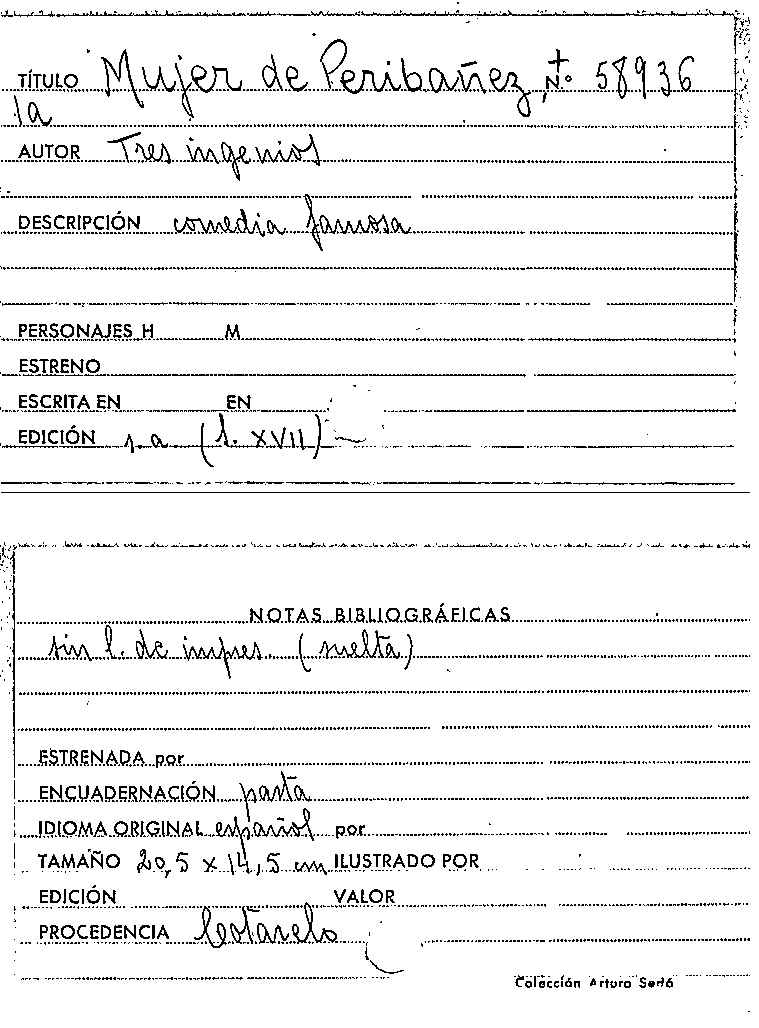 TÍTULO Mujer de Peribañez, Nº 58936
la
AUTOR Tres ingenios
DESCRIPCIÓN comedia famosa
PERSONAJES H M
ESTRENO
ESCRITA EN EN
EDICIÓN s.a (s. XVII)
NOTAS BIBLIOGRÁFICAS
sin l. de impres. (suelta)
ESTRENADA por
ENCUADERNACIÓN pasta
IDIOMA ORIGINAL español por
TAMAÑO 20,5 x 14,5 cm ILUSTRADO POR
EDICIÓN VALOR
PROCEDENCIA Cotarelo
Colección Arturo Sedó